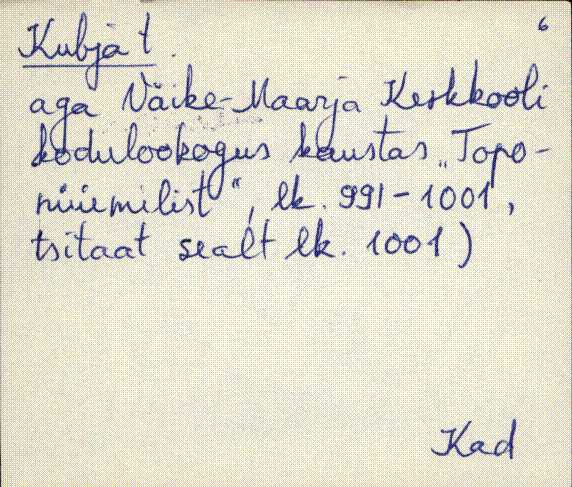 6
Kubja t.
aga Väike-Maarja Keskkooli
kodulookogus kaustas „Topo-
nüümilist“, lk. 991-1001,
tsitaat sealt lk. 1001)
Kad